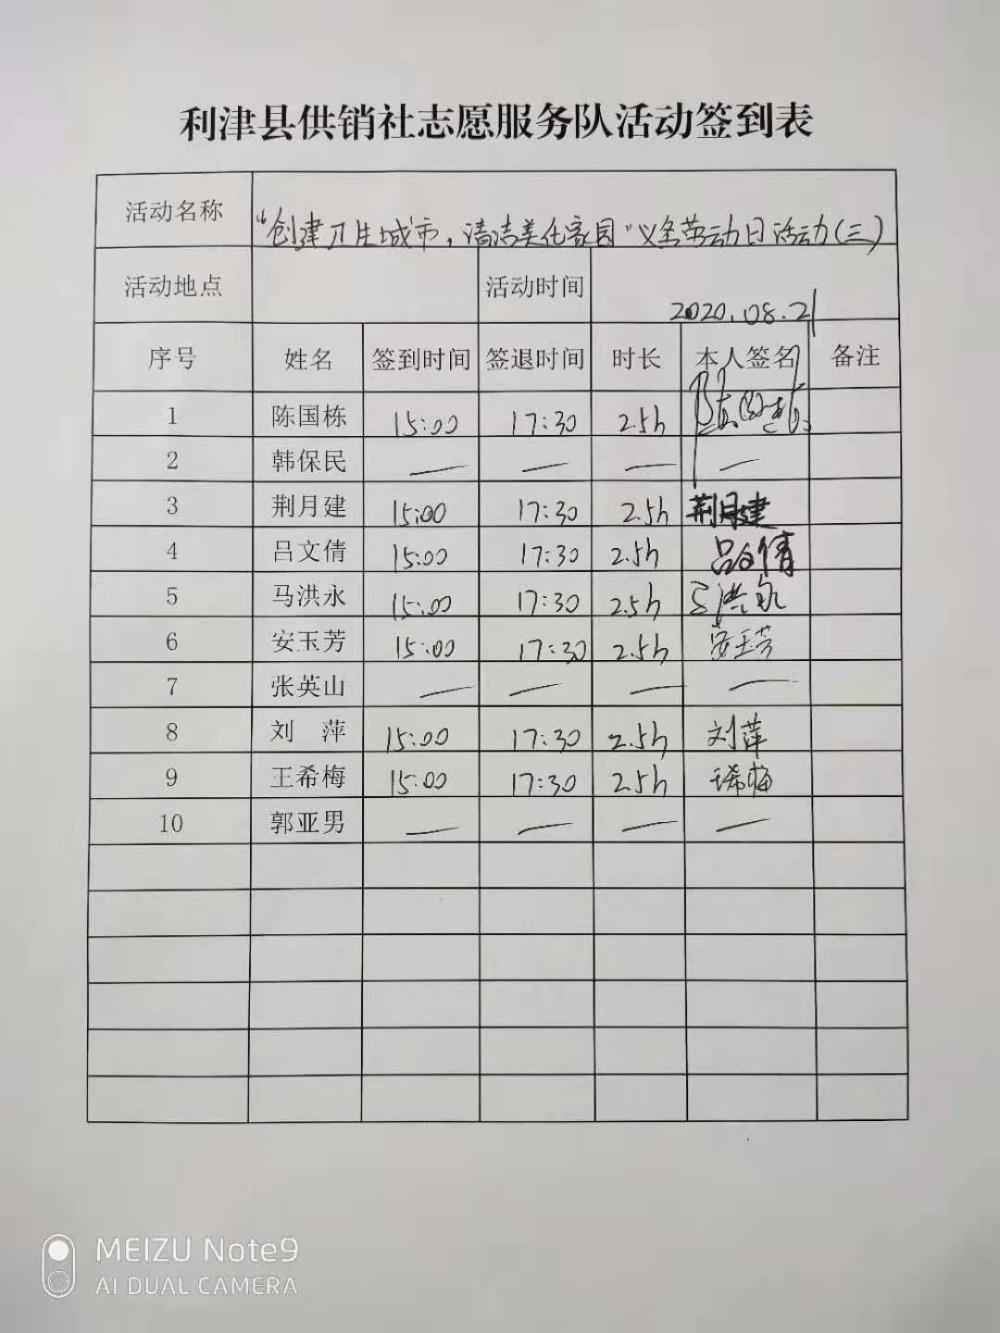 利津县供销社志愿服务队活动签到表
活动名称 “创建卫生城市，清洁美化家园”义务劳动日活动(三)
活动地点 活动时间 2020.08.21
序号 姓名 签到时间 签退时间 时长 本人签名 备注
1 陈国栋 15:00 17:30 2.5h 陈国栋
2 韩保民 — — — —
3 荆月建 15:00 17:30 2.5h 荆月建
4 吕文倩 15:00 17:30 2.5h 吕文倩
5 马洪永 15:00 17:30 2.5h 马洪永
6 安玉芳 15:00 17:30 2.5h 安玉芳
7 张英山 — — — —
8 刘 萍 15:00 17:30 2.5h 刘萍
9 王希梅 15:00 17:30 2.5h 王希梅
10 郭亚男 — — — —
MEIZU Note9
AI DUAL CAMERA